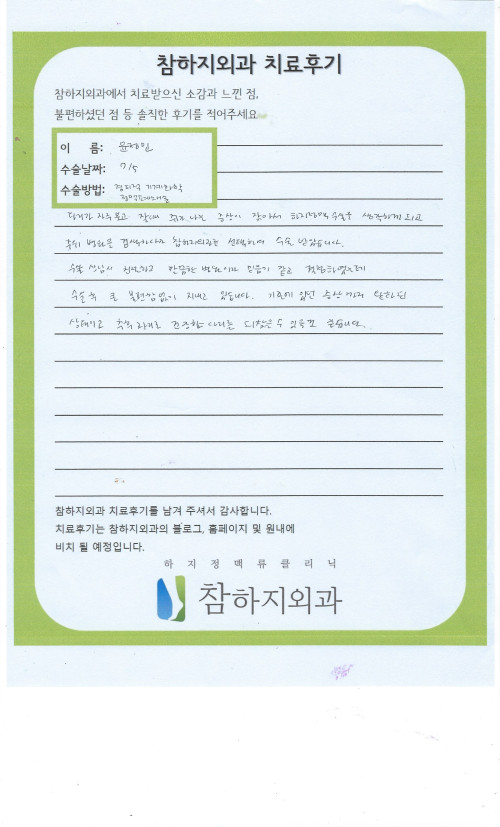 참하지외과 치료후기
참하지외과에서 치료받으신 소감과 느낀 점,
불편하셨던 점 등 솔직한 후기를 적어주세요
이 름:
수술날짜: 7/5
수술방법: 정맥 기계화학
다리가 자주 붓고 증상이 많아서 하지정맥 수술을 생각하게 되고
주위 병원을 검색하다가 참하지외과를 선택하여 수술 받았습니다.
수술 상담시 친절하고 병원이라 믿음이 갔고
수술 후 큰 불편함 없이 지내고 있습니다. 기존에 있던 증상
상태이고 건강한 다리를 되찾을 수 있을것 같습니다.
참하지외과 치료후기를 남겨 주셔서 감사합니다.
치료후기는 참하지외과의 블로그, 홈페이지 및 원내에
비치 될 예정입니다.
하지정맥류클리닉
참하지외과